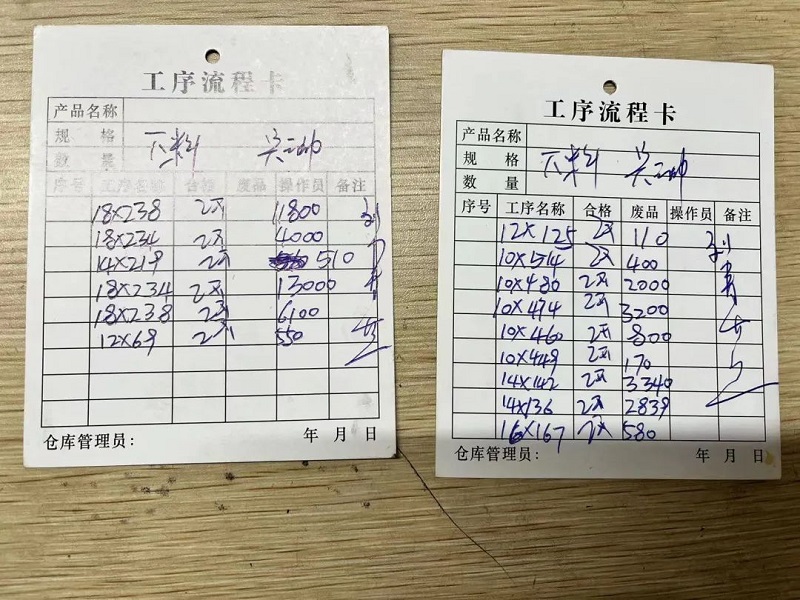 工序流程卡
产品名称
规 格 下料 吴
数 量
序号 工序名称 合格 废品 操作员 备注
18×238 2万 11800
18×234 2万 4000
14×219 2万 510
18×234 2万 13000
18×238 2万 6100
12×69 2万 550
仓库管理员: 年 月 日
工序流程卡
产品名称
规 格 下料 吴
数 量
序号 工序名称 合格 废品 操作员 备注
12×125 2万 110
10×514 2万 400
10×480 2万 2000
10×474 2万 3200
10×460 2万 800
10×449 2万 170
14×142 2万 3340
14×136 2万 2839
16×167 2万 580
仓库管理员: 年 月 日